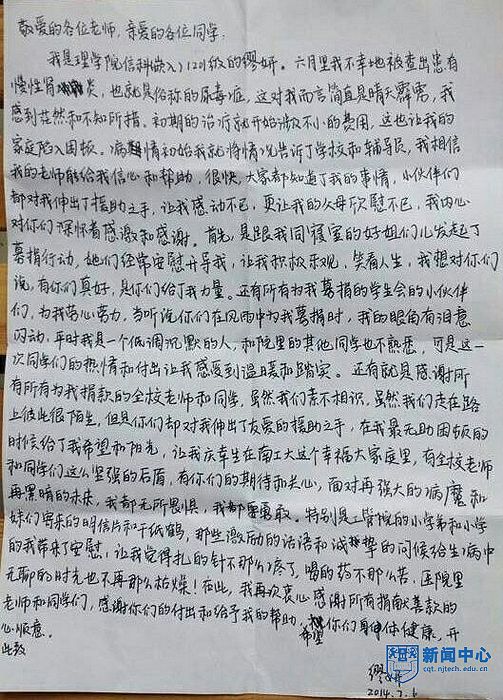 敬爱的各位老师，亲爱的各位同学：
我是理学院信科(嵌入)1201级的缪妍。六月里我不幸地被查出患有
慢性肾炎，也就是俗称的尿毒症，这对我而言简直是晴天霹雳，我
感到茫然和不知所措。初期的治疗就开始涉及不小的费用，这也让我的
家庭陷入困顿。病情初始我就将情况告诉了学校和辅导员，我相信
我的老师能给我信心和帮助，很快，大家都知道了我的事情，小伙伴们
都对我伸出了援助之手，让我感动不已，更让我的父母欣慰不已，我内心
对你们深怀着感激和感谢。首先，是跟我同寝室的好姐们儿发起了
募捐行动，她们经常安慰开导我，让我积极乐观，笑看人生，我想对你们
说，有你们真好，是你们给了我力量。还有所有为我募捐的学生会的小伙伴
们，为我劳心劳力，当听说你们在风雨中为我募捐时，我的眼角有泪意
闪动，平时我是一个低调沉默的人，和院里的其他同学也不熟悉，可是这一
次同学们的热情和付出让我感受到温暖和踏实。还有就是感谢所
有所有为我捐款的全校老师和同学，虽然我们素不相识，虽然我们走在路
上彼此很陌生，但是你们却对我伸出了友爱的援助之手，在我最无助困顿的
时候给了我希望和阳光，让我庆幸生在南工大这个幸福大家庭里，有全校老师
和同学们这么坚强的后盾，有你们的期待和关心，面对再强大的病魔和
再黑暗的未来，我都无所畏惧，我都要勇敢。特别是工管院的小学弟和小学
妹们寄来的明信片和千纸鹤，那些激励的话语和诚挚的问候给生病中
的我带来了安慰，让我觉得扎的针不那么疼了，喝的药不那么苦，医院里
无聊的时光也不再那么枯燥！在此，我再次衷心感谢所有捐献善款的
老师和同学们，感谢你们的付出和给予我的帮助，希望你们身体健康，开
心顺意。
此致
缪妍
2014.7.6
新闻中心
cqt.njtech.edu.cn